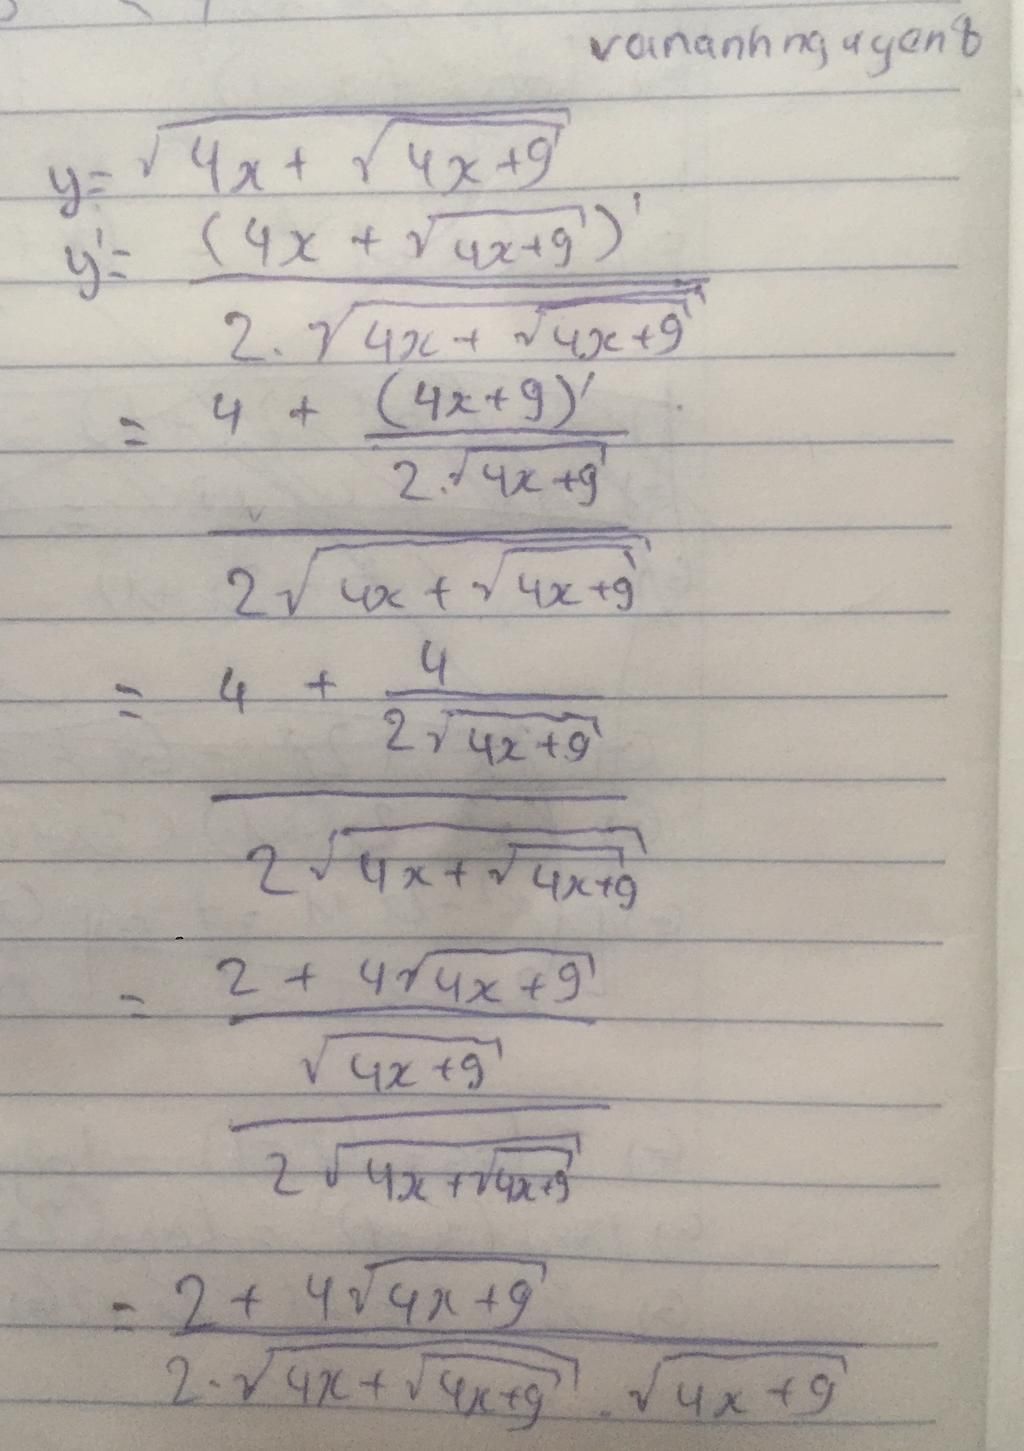 vananhnguyen8
y = √(4x + √(4x+9))
y' = (4x + √(4x+9))' / (2.√(4x + √(4x+9)))
= (4 + (4x+9)' / (2.√(4x+9))) / (2√(4x + √(4x+9)))
= (4 + 4 / (2√(4x+9))) / (2√(4x + √(4x+9)))
= ((2 + 4√(4x+9)) / √(4x+9)) / (2√(4x + √(4x+9)))
= (2 + 4√(4x+9)) / (2.√(4x + √(4x+9)) . √(4x+9))